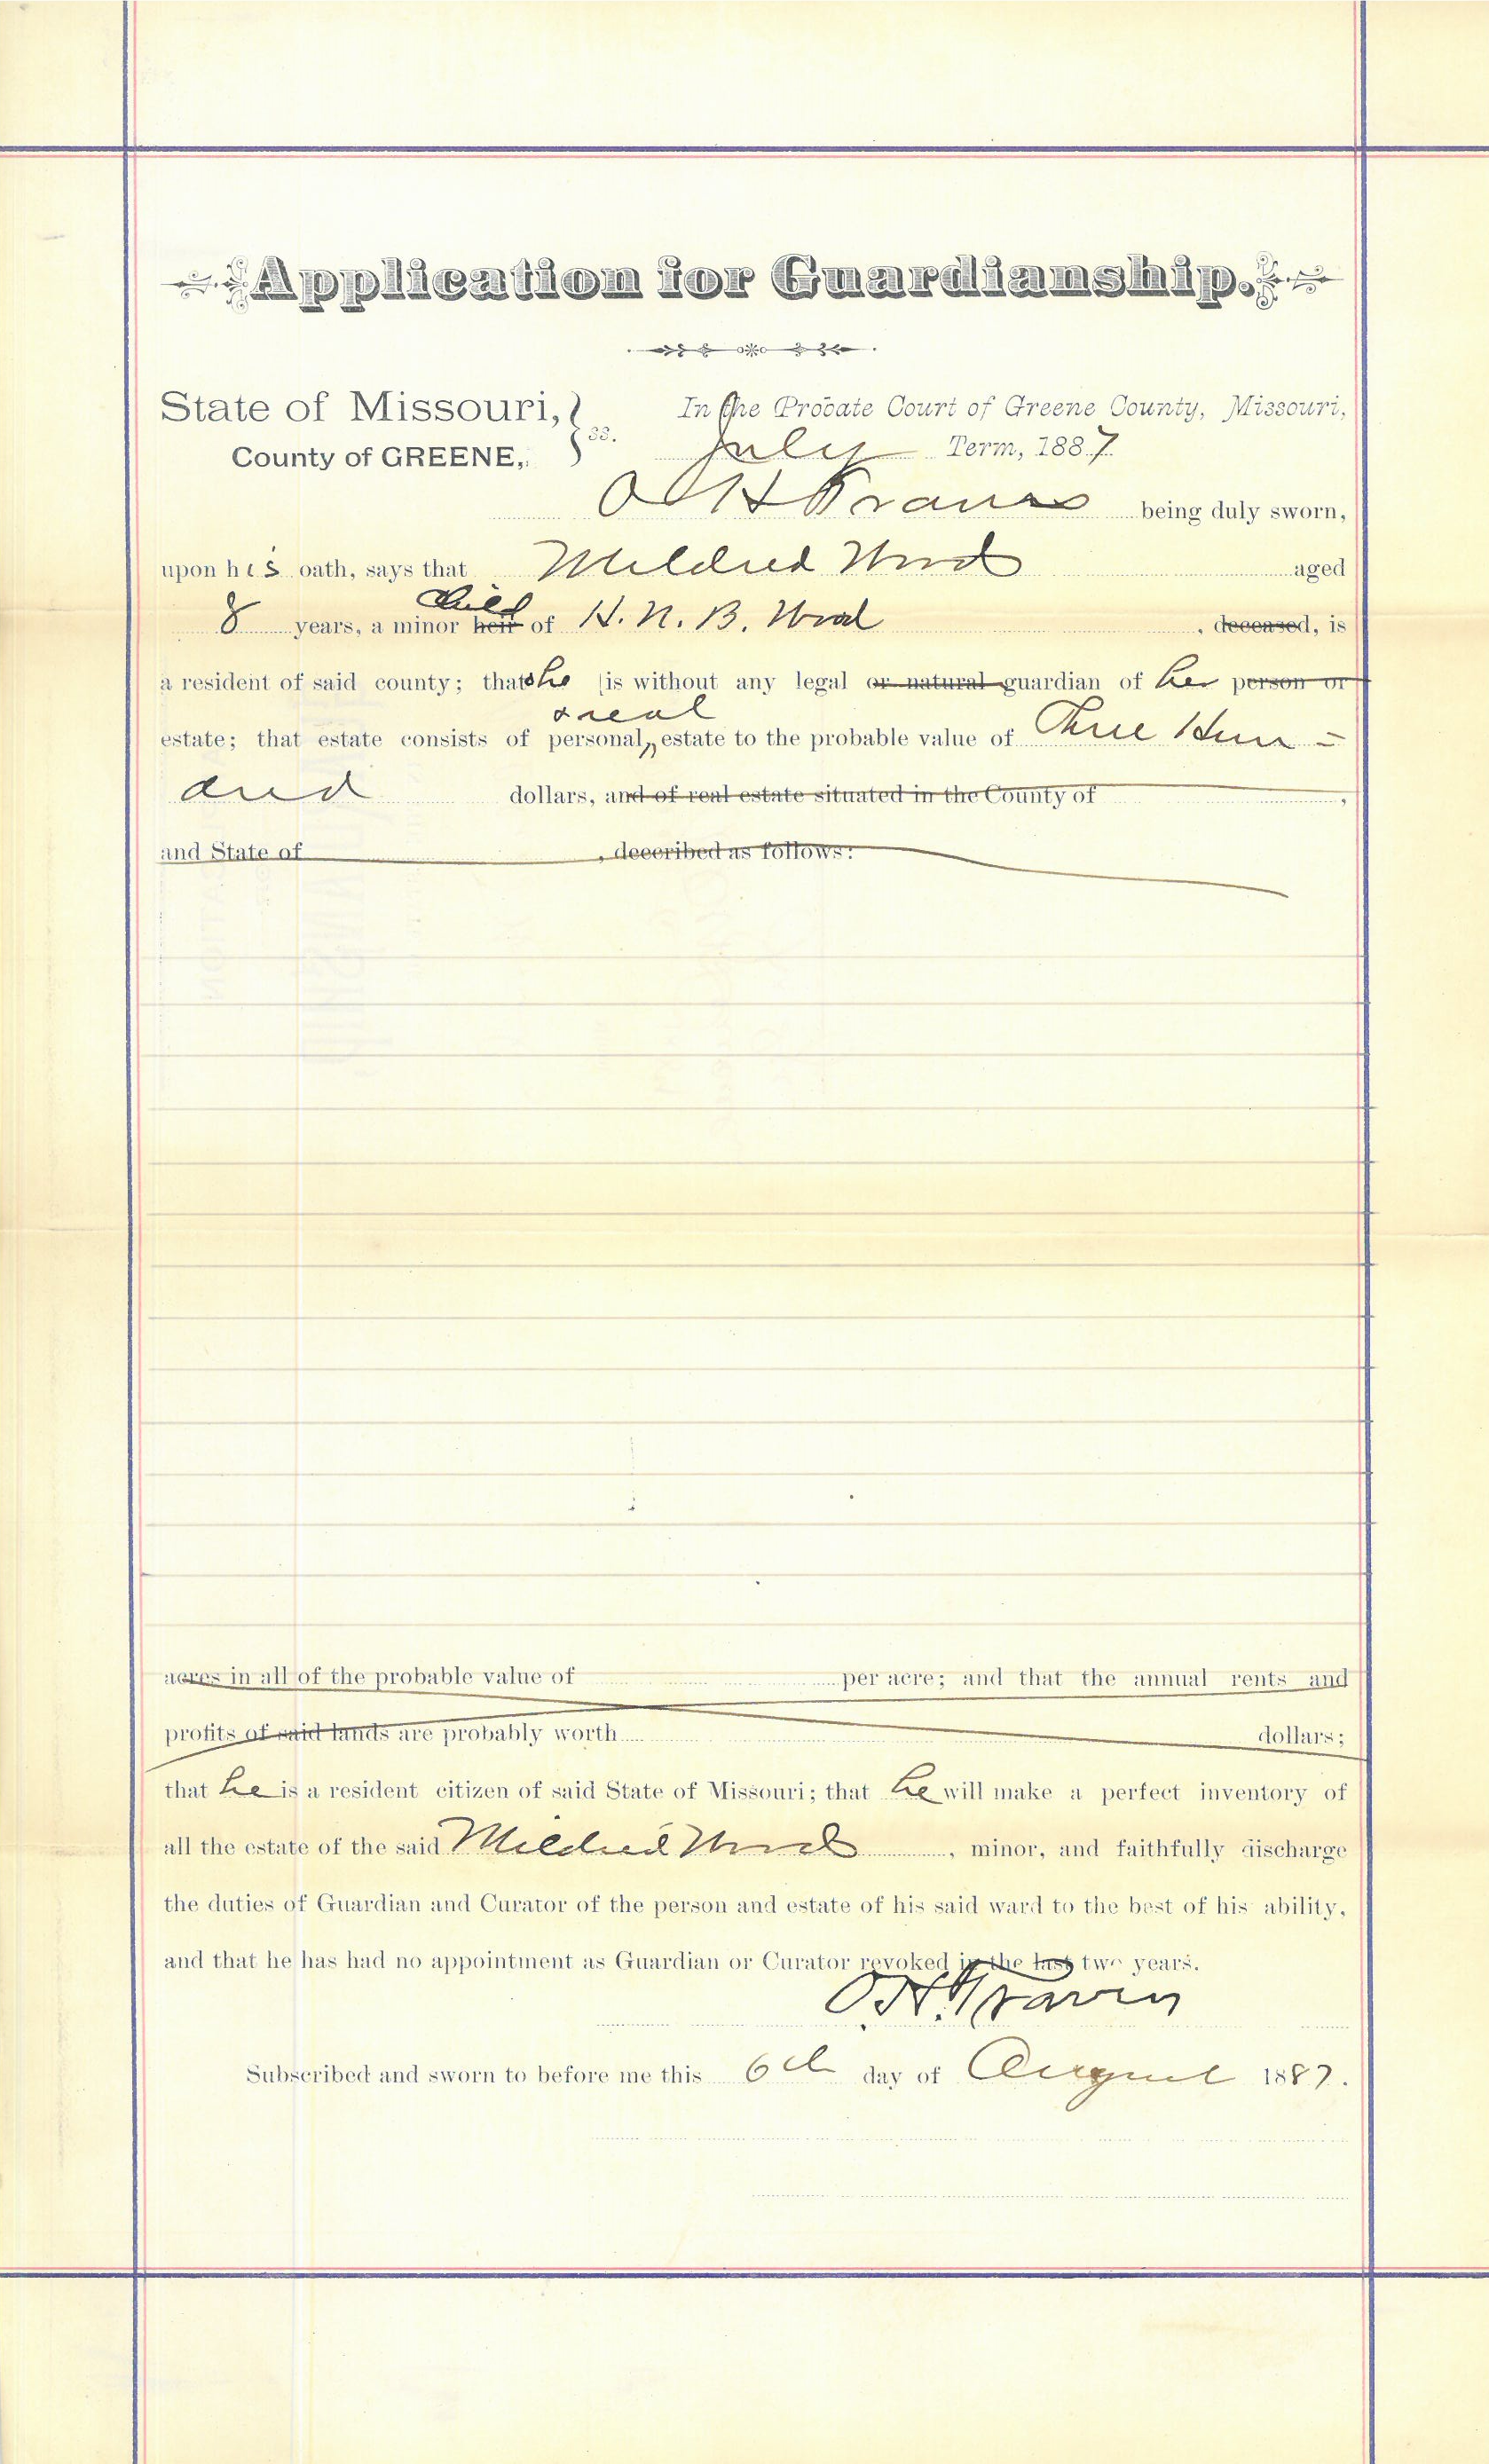 Application for Guardianship.
State of Missouri, } ss. In the Probate Court of Greene County, Missouri,
County of GREENE, July Term, 1887.
O H Travers being duly sworn,
upon his oath, says that Mildred Wood aged
8 years, a minor heir child of H. N. B. Wood, deceased, is
a resident of said county; that she is without any legal or natural guardian of her person or
estate; that estate consists of personal, & real estate to the probable value of Three Hun=
dred dollars, and of real estate situated in the County of ,
and State of , deecribed as follows:
acres in all of the probable value of per acre; and that the annual rents and
profits of said lands are probably worth dollars;
that he is a resident citizen of said State of Missouri; that he will make a perfect inventory of
all the estate of the said Mildred Wood, minor, and faithfully discharge
the duties of Guardian and Curator of the person and estate of his said ward to the best of his ability,
and that he has had no appointment as Guardian or Curator revoked in the last two years.
O. H. Travers
Subscribed and sworn to before me this 6th day of August 1887.